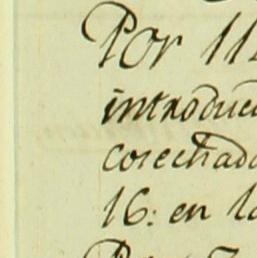 Por 11
introduc
cosechad
16: en l